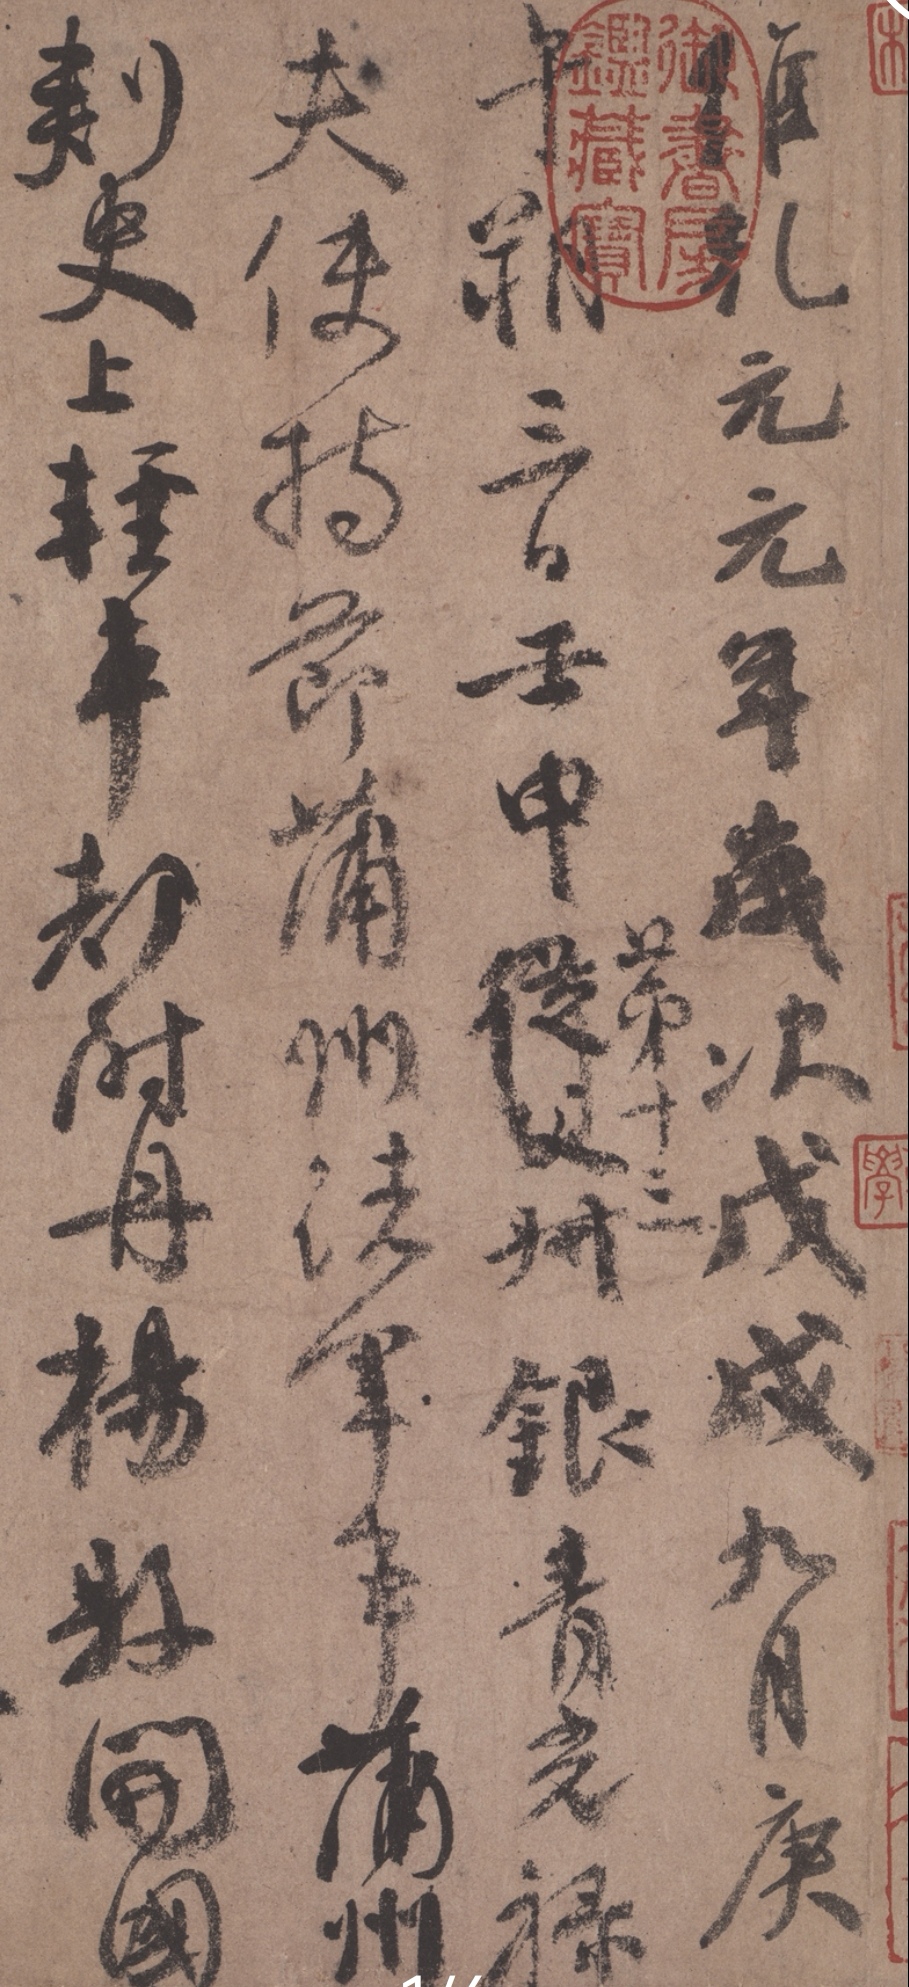 維乾元元年歲次戊戌九月庚
午朔三日壬申第十三從父叔銀青光祿
夫使持節蒲州諸軍事蒲州
刺史上輕車都尉丹楊縣開國
御書房鑑藏寶
學